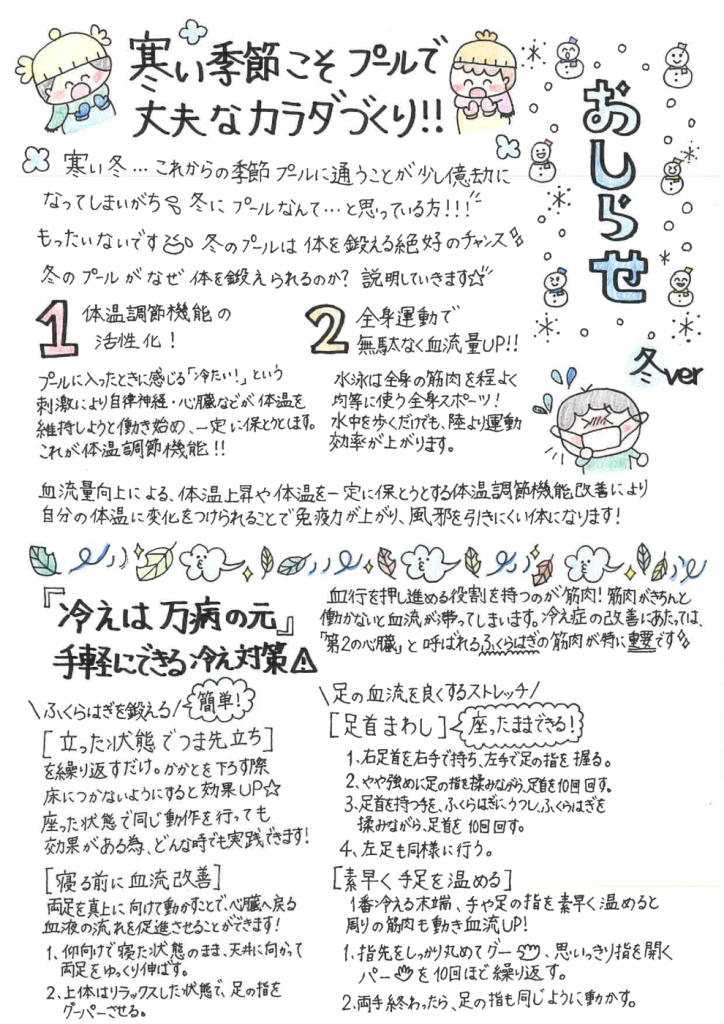 寒い季節こそプールで
丈夫なカラダづくり!!
おしらせ
冬ver
寒い冬…これからの季節プールに通うことが少し億劫に
なってしまいがち 冬にプールなんて…と思っている方!!!
もったいないです 冬のプールは体を鍛える絶好のチャンス
冬のプールがなぜ体を鍛えられるのか? 説明していきます☆
1 体温調節機能の
活性化!
プールに入ったときに感じる「冷たい!」という
刺激により自律神経・心臓などが体温を
維持しようと働き始め、一定に保とうとします。
これが体温調節機能!!
2 全身運動で
無駄なく血流量UP!!
水泳は全身の筋肉を程よく
均等に使う全身スポーツ!
水中を歩くだけでも、陸より運動
効率が上がります。
血流量向上による、体温上昇や体温を一定に保とうとする体温調節機能改善により
自分の体温に変化をつけられることで免疫力が上がり、風邪を引きにくい体になります!
『冷えは万病の元』
手軽にできる冷え対策⚠
血行を押し進める役割を持つのが筋肉!筋肉がきちんと
働かないと血流が滞ってしまいます。冷え症の改善にあたっては、
「第2の心臓」と呼ばれるふくらはぎの筋肉が特に重要です
\ふくらはぎを鍛える/ 簡単!
[立った状態でつま先立ち]
を繰り返すだけ。かかとを下ろす際
床につかないようにすると効果UP☆
座った状態で同じ動作を行っても
効果がある為、どんな時でも実践できます!
[寝る前に血流改善]
両足を真上に向けて動かすことで、心臓へ戻る
血液の流れを促進させることができます!
1、仰向けで寝た状態のまま、天井に向かって
両足をゆっくり伸ばす。
2、上体はリラックスした状態で、足の指を
グーパーさせる。
\足の血流を良くするストレッチ/
[足首まわし] 座ったままできる!
1、右足首を右手で持ち、左手で足の指を握る。
2、やや強めに足の指を揉みながら、足首を10回回す。
3、足首を持つ手を、ふくらはぎにうつし、ふくらはぎを
揉みながら、足首を10回回す。
4、左足も同様に行う。
[素早く手足を温める]
1番冷える末端、手や足の指を素早く温めると
周りの筋肉も動き血流UP!
1、指先をしっかり丸めてグー、思いっきり指を開く
パーを10回ほど繰り返す。
2、両手終わったら、足の指も同じように動かす。